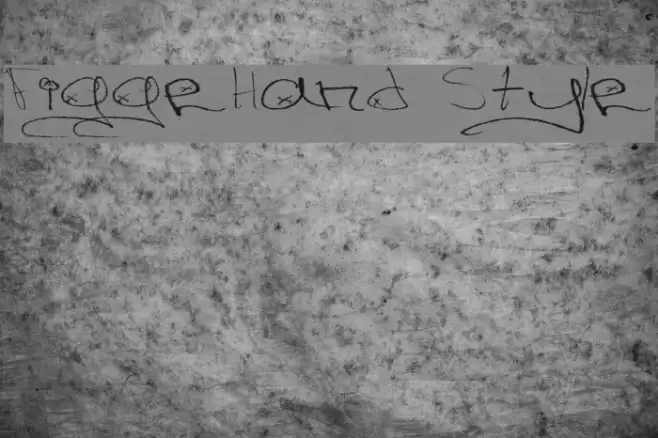 FiggeHand Style